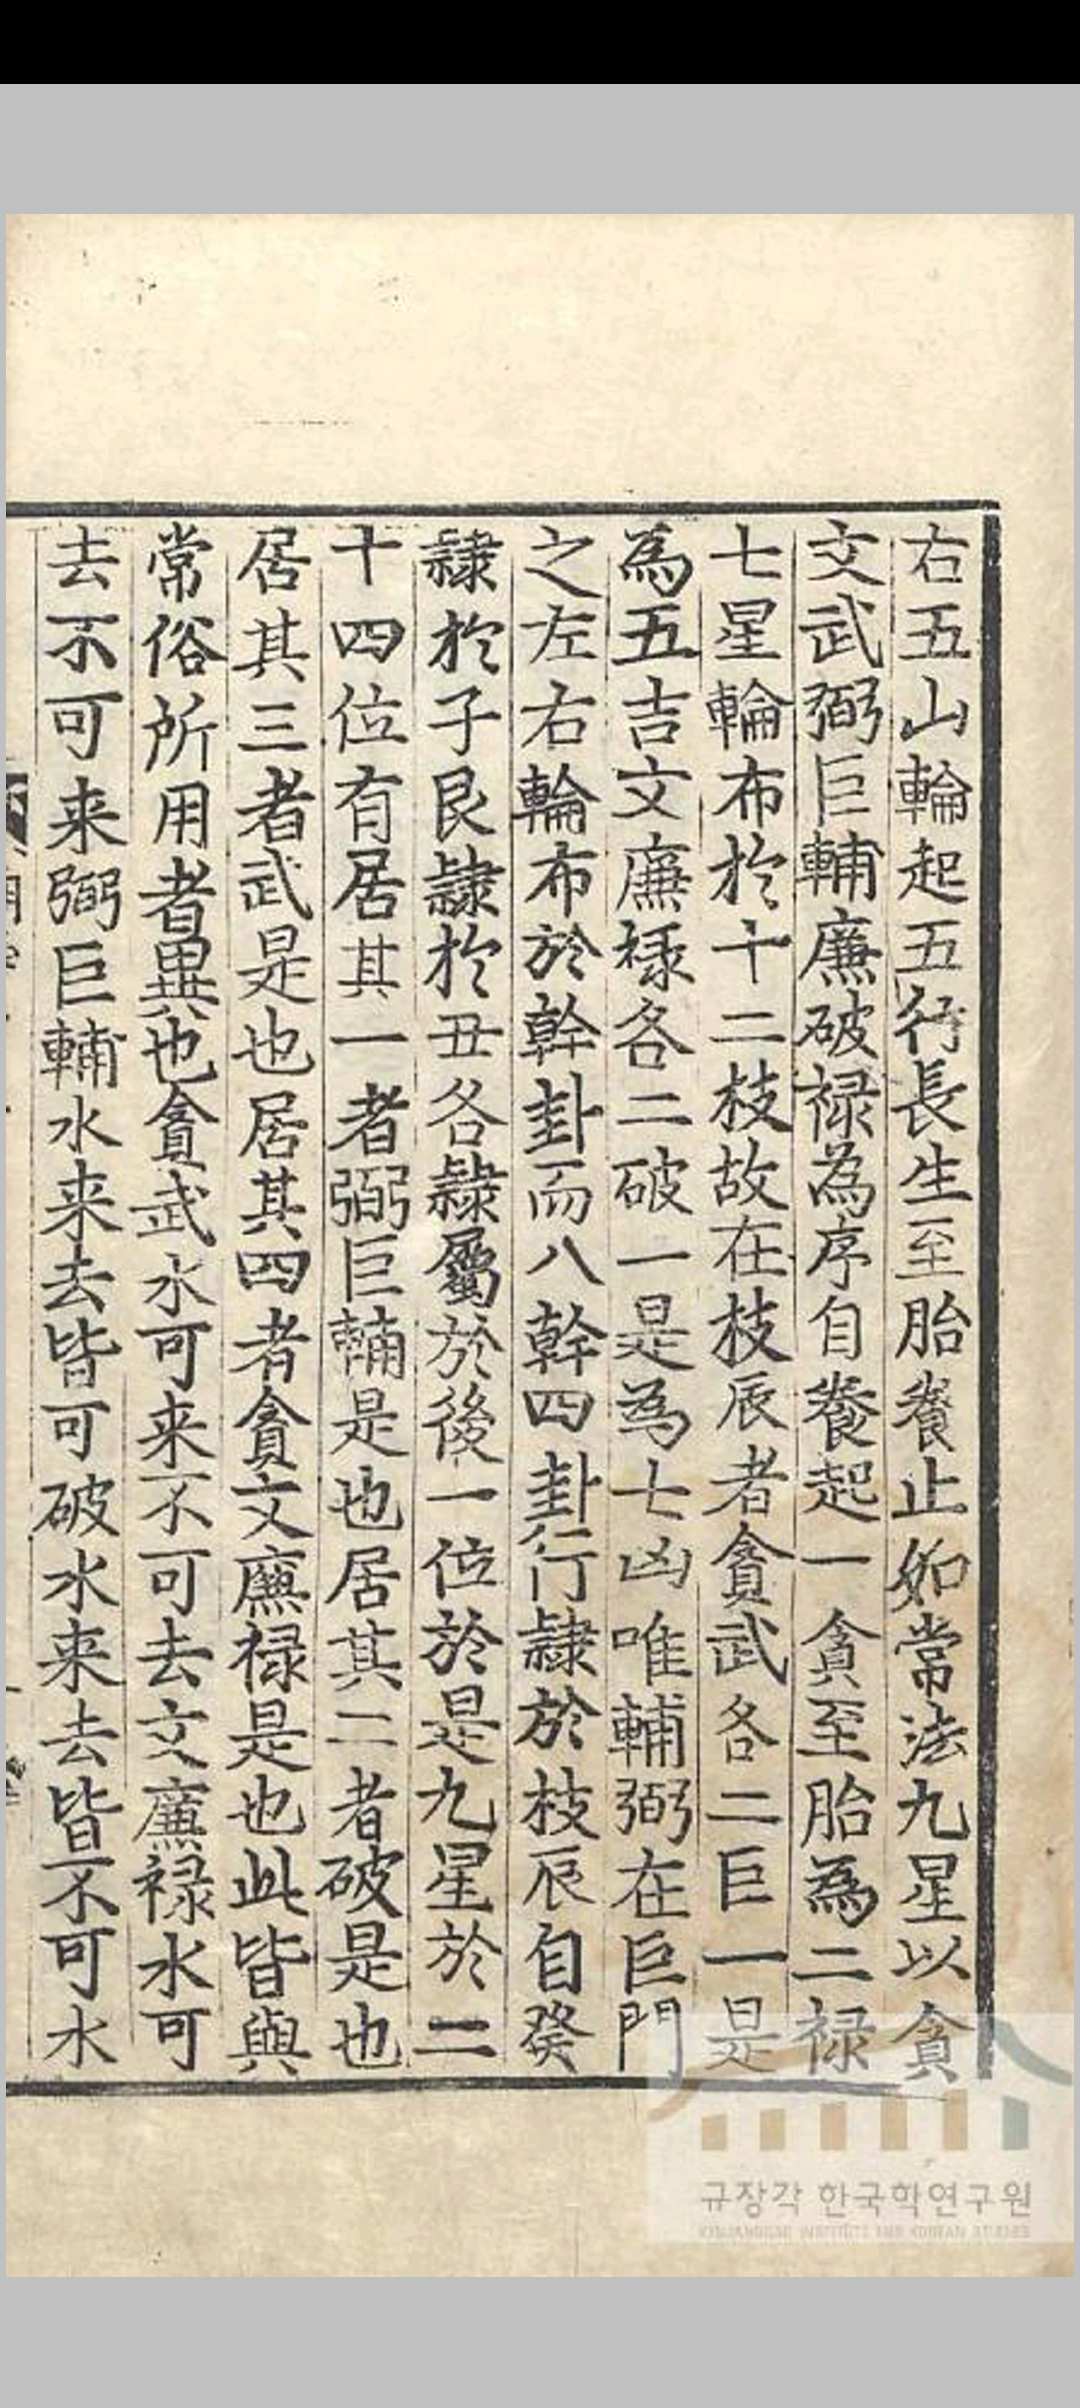 右五山輪起五行長生至胎養止如常法九星以貪
文武弼巨輔廉破禄為序自養起一貪至胎為二禄
七星輪布於十二枝故在枝辰者貪武各二巨一是
為五吉文廉禄各二破一是為七凶唯輔弼在巨門
之左右輪布於幹卦而八幹四卦行隷於枝辰自癸
隷於子艮隷於丑各隷屬於後一位於是九星於二
十四位有居其一者弼巨輔是也居其二者破是也
居其三者武是也居其四者貪文廉禄是也此皆與
常俗所用者異也貪武水可来不可去文廉禄水可
去不可来弼巨輔水来去皆可破水来去皆不可水
규장각 한국학연구원